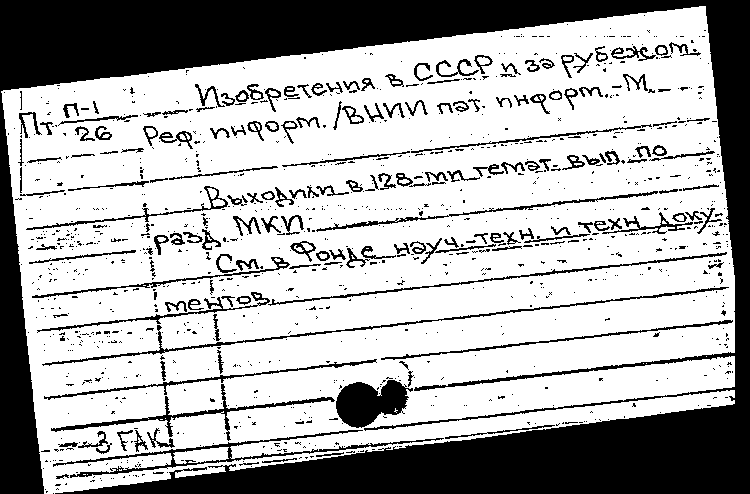 Пт П-1 Изобретения в СССР и за рубежом:
26 Реф. информ. /ВНИИ пат. информ.-М.
Выходили в 128-ми темат. вып. по
разд. МКИ.
См. в Фонде науч.-техн. и техн. доку-
ментов.
3 ГАК